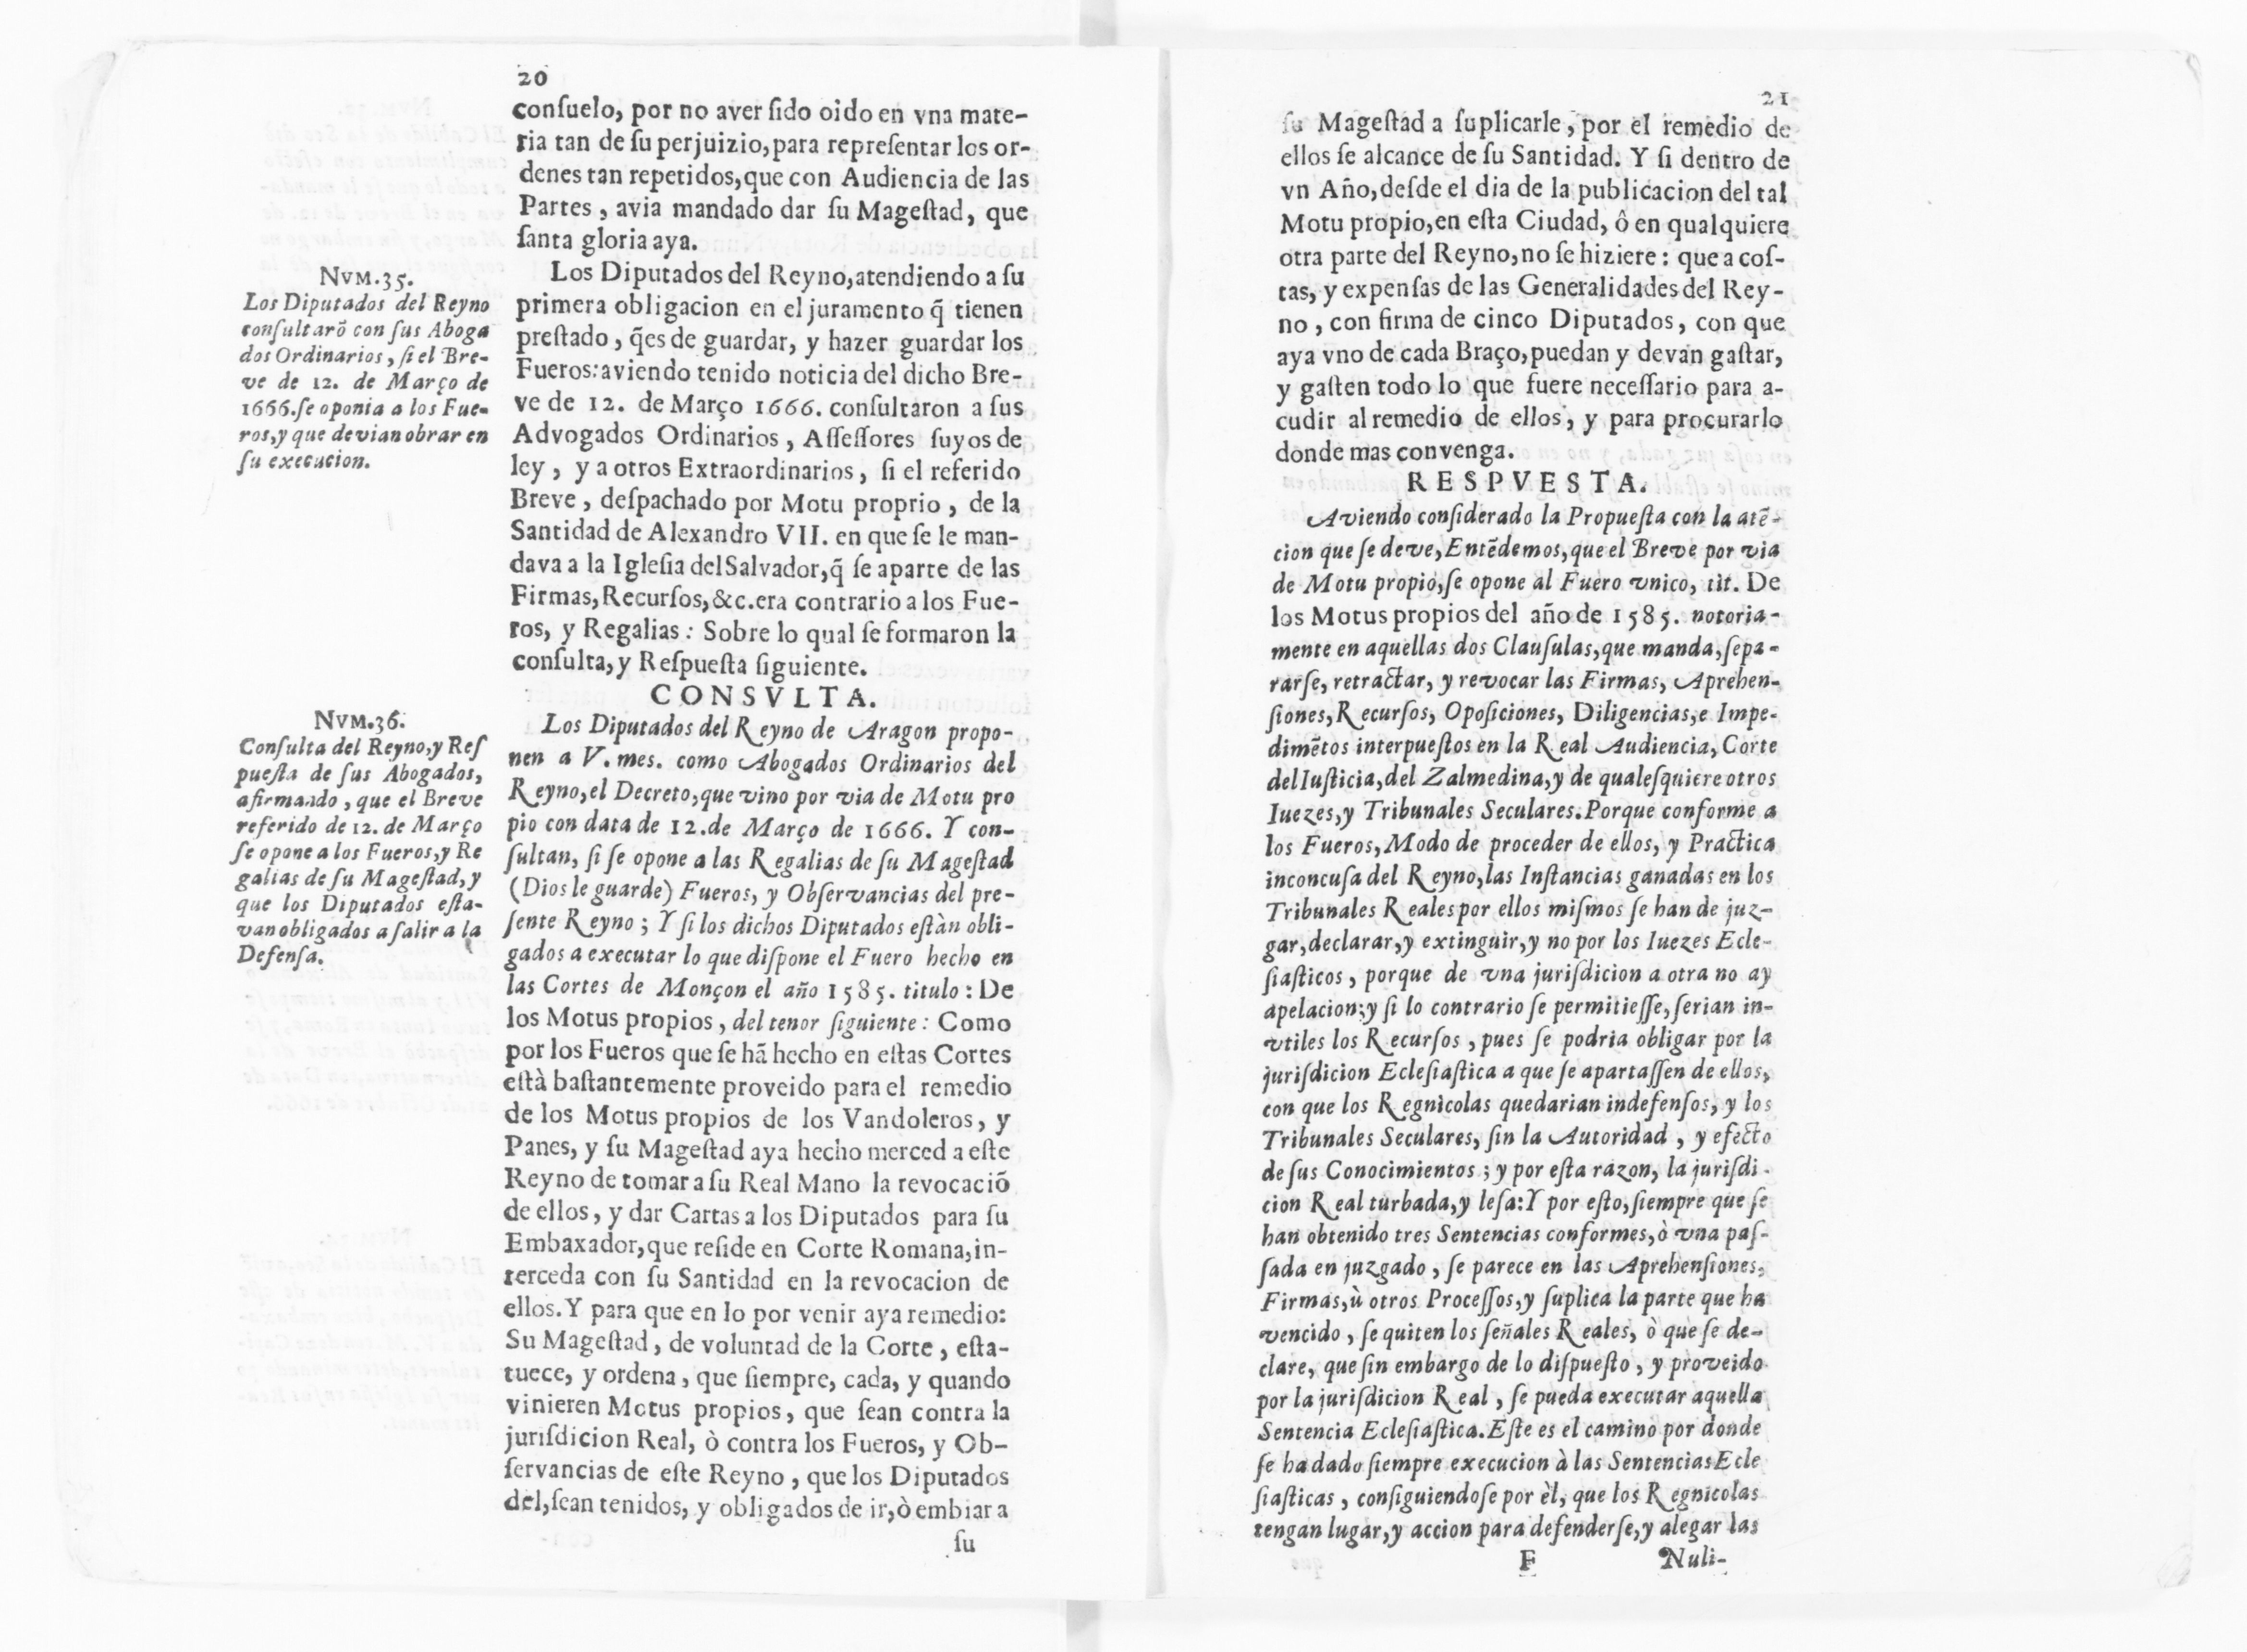 20
conſuelo, por no aver ſido oido en vna mate-
ria tan de ſu perjuizio, para repreſentar los or-
denes tan repetidos, que con Audiencia de las
Partes, avia mandado dar ſu Mageſtad, que
ſanta gloria aya.
NVM.35.
Los Diputados del Reyno
conſultarõ con ſus Aboga
dos Ordinarios, ſi el Bre-
ve de 12. de Março de
1666. ſe oponia a los Fue-
ros, y que devian obrar en
ſu execucion.
Los Diputados del Reyno, atendiendo a ſu
primera obligacion en el juramento q̃ tienen
preſtado, q̃es de guardar, y hazer guardar los
Fueros: aviendo tenido noticia del dicho Bre-
ve de 12. de Março 1666. conſultaron a ſus
Advogados Ordinarios, Aſſeſſores ſuyos de
ley, y a otros Extraordinarios, ſi el referido
Breve, deſpachado por Motu proprio, de la
Santidad de Alexandro VII. en que ſe le man-
dava a la Igleſia del Salvador, q̃ ſe aparte de las
Firmas, Recurſos, &c. era contrario a los Fue-
ros, y Regalias: Sobre lo qual ſe formaron la
conſulta, y Reſpueſta ſiguiente.
CONSVLTA.
NVM.36.
Conſulta del Reyno, y Reſ
pueſta de ſus Abogados,
afirmando, que el Breve
referido de 12. de Março
ſe opone a los Fueros, y Re
galias de ſu Mageſtad, y
que los Diputados eſta-
van obligados a ſalir a la
Defenſa.
Los Diputados del Reyno de Aragon propo-
nen a V. mes. como Abogados Ordinarios dèl
Reyno, el Decreto, que vino por via de Motu pro
pio con data de 12. de Março de 1666. Y con-
ſultan, ſi ſe opone a las Regalias de ſu Mageſtad
(Dios le guarde) Fueros, y Obſervancias del pre-
ſente Reyno; Y ſi los dichos Diputados eſtàn obli-
gados a executar lo que diſpone el Fuero hecho en
las Cortes de Monçon el año 1585. titulo: De
los Motus propios, del tenor ſiguiente: Como
por los Fueros que ſe hã hecho en eſtas Cortes
eſtà baſtantemente proveido para el remedio
de los Motus propios de los Vandoleros, y
Panes, y ſu Mageſtad aya hecho merced a eſte
Reyno de tomar a ſu Real Mano la revocaciõ
de ellos, y dar Cartas a los Diputados para ſu
Embaxador, que reſide en Corte Romana, in-
terceda con ſu Santidad en la revocacion de
ellos. Y para que en lo por venir aya remedio:
Su Mageſtad, de voluntad de la Corte, eſta-
tuece, y ordena, que ſiempre, cada, y quando
vinieren Motus propios, que ſean contra la
juriſdicion Real, ò contra los Fueros, y Ob-
ſervancias de eſte Reyno, que los Diputados
del, ſean tenidos, y obligados de ir, ò embiar a
ſu
21
ſu Mageſtad a ſuplicarle, por el remedio de
ellos ſe alcance de ſu Santidad. Y ſi dentro de
vn Año, deſde el dia de la publicacion del tal
Motu propio, en eſta Ciudad, ô en qualquiere
otra parte del Reyno, no ſe hiziere: que a coſ-
tas, y expenſas de las Generalidades del Rey-
no, con firma de cinco Diputados, con que
aya vno de cada Braço, puedan y devan gaſtar,
y gaſten todo lo que fuere neceſſario para a-
cudir al remedio de ellos, y para procurarlo
donde mas convenga.
RESPVESTA.
Aviendo conſiderado la Propueſta con la atẽ-
cion que ſe deve, Entẽdemos, que el Breve por via
de Motu propio, ſe opone al Fuero vnico, tit. De
los Motus propios del año de 1585. notoria-
mente en aquellas dos Clauſulas, que manda, ſepa-
rarſe, retractar, y revocar las Firmas, Aprehen-
ſiones, Recurſos, Opoſiciones, Diligencias, e Impe-
dimẽtos interpueſtos en la Real Audiencia, Corte
del Iuſticia, del Zalmedina, y de qualeſquiere otros
Iuezes, y Tribunales Seculares. Porque conforme a
los Fueros, Modo de proceder de ellos, y Practica
inconcuſa del Reyno, las Inſtancias ganadas en los
Tribunales Reales por ellos miſmos ſe han de juz-
gar, declarar, y extinguir, y no por los Iuezes Ecle-
ſiaſticos, porque de vna juriſdicion a otra no ay
apelacion; y ſi lo contrario ſe permitieſſe, ſerian in-
vtiles los Recurſos, pues ſe podria obligar por la
juriſdicion Ecleſiaſtica a que ſe apartaſſen de ellos,
con que los Regnicolas quedarian indefenſos, y los
Tribunales Seculares, ſin la Autoridad, y efecto
de ſus Conocimientos; y por eſta razon, la juriſdi-
cion Real turbada, y leſa: Y por eſto, ſiempre que ſe
han obtenido tres Sentencias conformes, ò vna paſ-
ſada en juzgado, ſe parece en las Aprehenſiones,
Firmas, ù otros Proceſſos, y ſuplica la parte que ha
vencido, ſe quiten los ſeñales Reales, ò que ſe de-
clare, que ſin embargo de lo diſpueſto, y proveido
por la juriſdicion Real, ſe pueda executar aquella
Sentencia Ecleſiaſtica. Eſte es el camino por donde
ſe ha dado ſiempre execucion à las Sentencias Ecle
ſiaſticas, conſiguiendoſe por èl, que los Regnicolas
tengan lugar, y accion para defenderſe, y alegar las
F
Nuli-